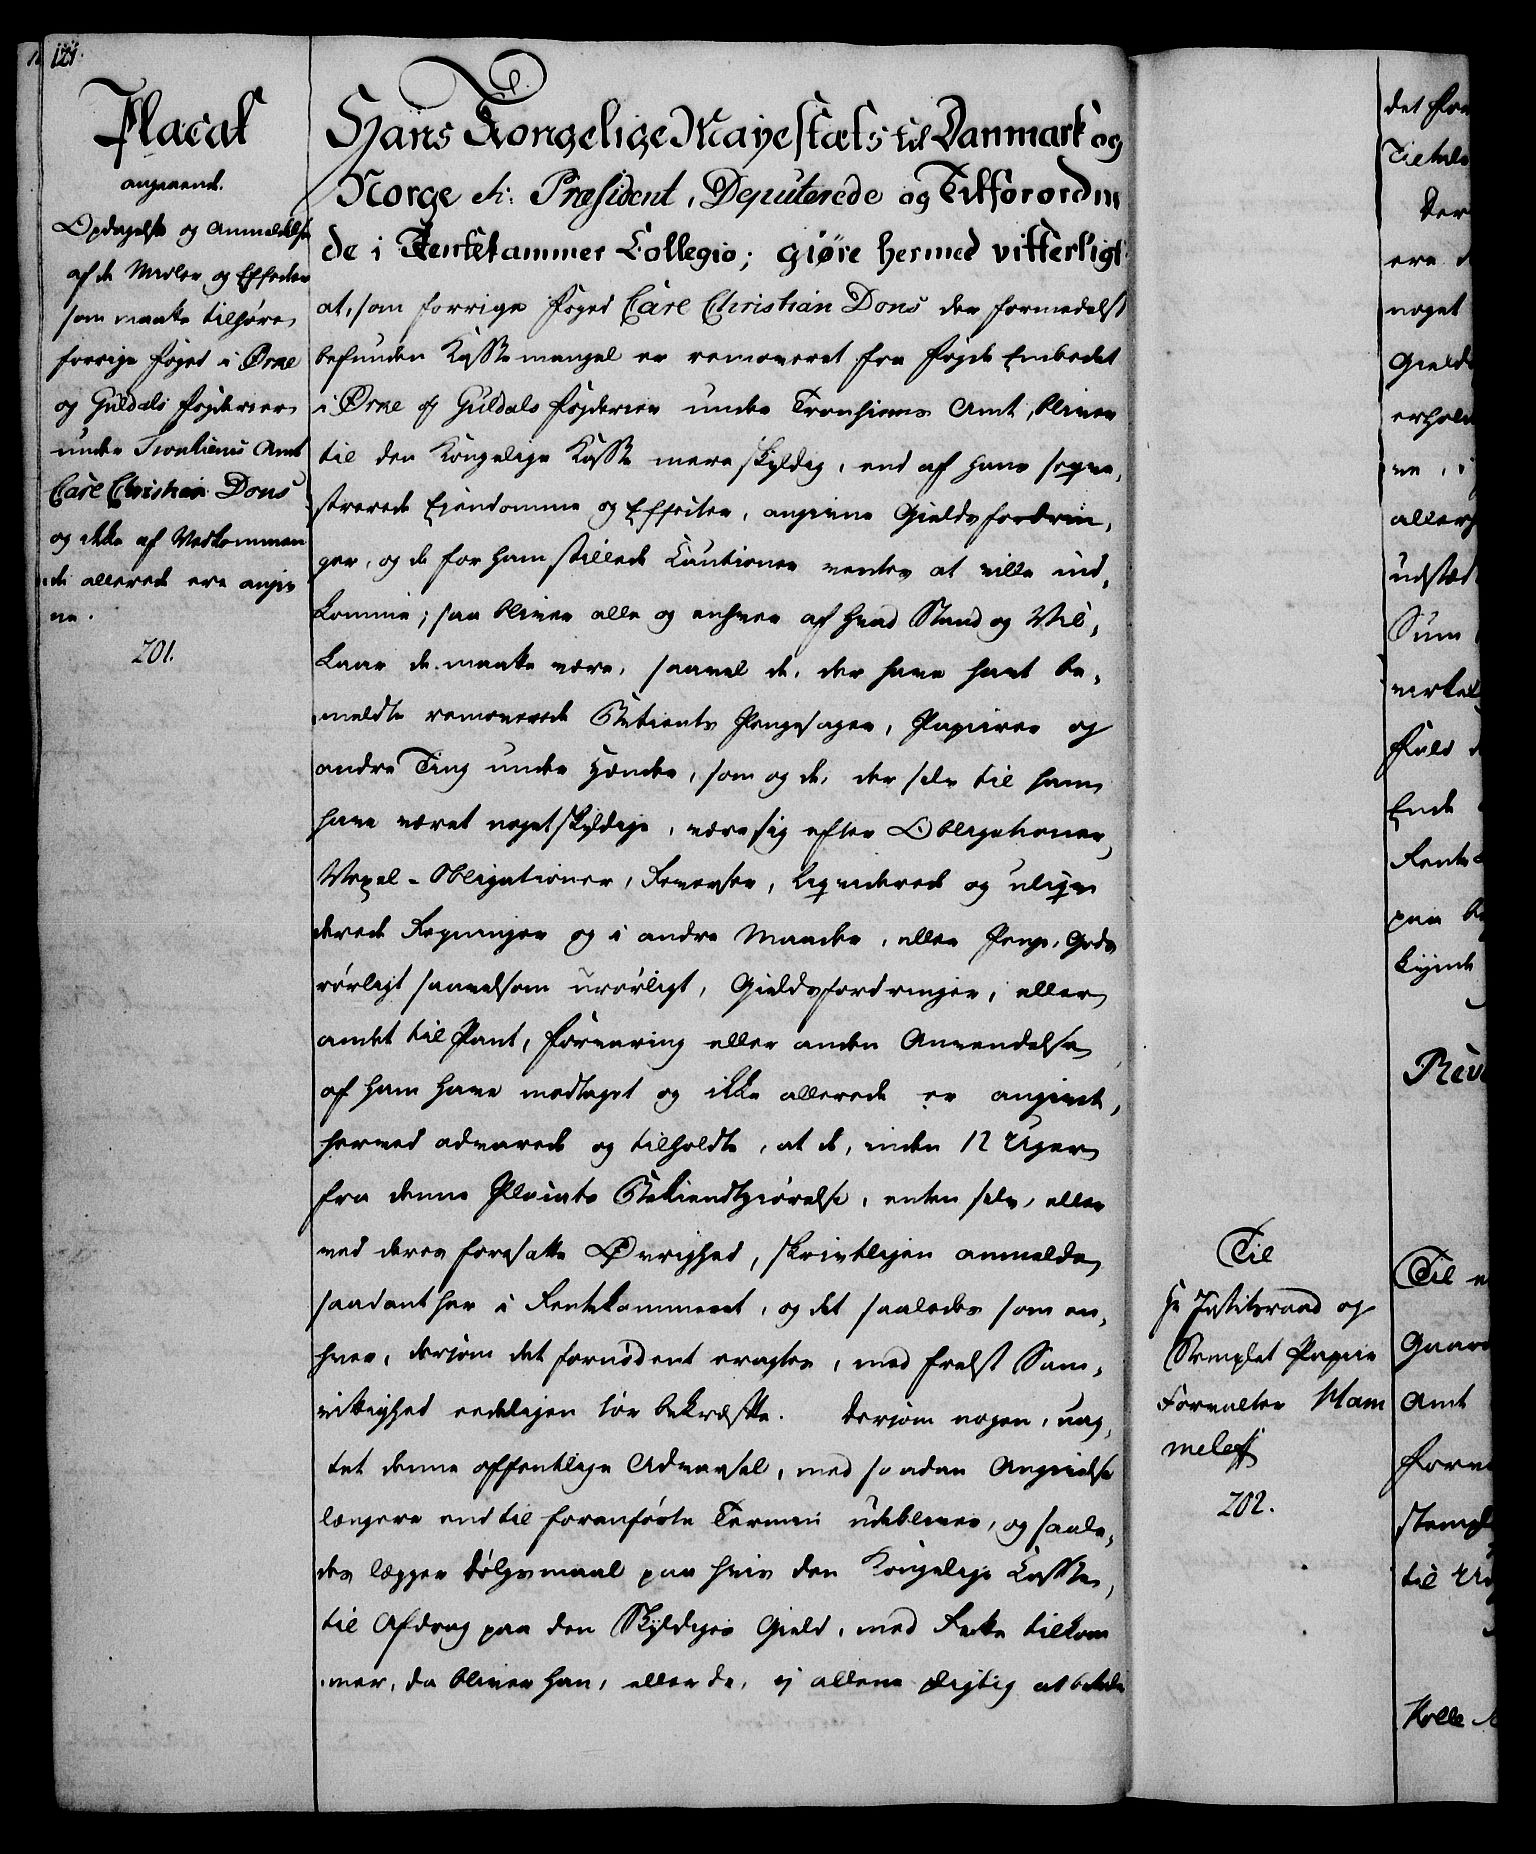 121.
Placat
angaaende.
Opdagelse og Anmeldelse
af de Midler og Effecter
som maatte tilhøre
forrige Foged i Ørke
og Guldals Fogderier
under Tronhiems Amt
Carl Christian Dons
og ikke af Vedkommen
de allerede ere angiv
ne.
201.
Hans Kongelige Mayestæts til Danmark og
Norge &: Præsident, Deputerede og Tilforordne
de i Rentekammer Collegio; giøre hermed vitterligt
at, som forrige Foged Carl Christian Dons der formedelst
befunden Kassemangel er removeret fra Fogde Embedet
i Ørke og Guldals Fogderier under Tronhiems Amt, bliver
til den Kongelige Kasse mere skyldig, end af hans seqve,
strerede Ejendomme og Effecter, angivne Gieldsfordrin,
ger, og de for ham stillede Cautioner ventes at ville ind,
komme; saa bliver alle og enhver af hvad Stand og Vil,
kaar de maatte være, saavel de, der have havt be,
meldte removerede Betients Pengesager, Papirer og
andre Ting under Hænder, som og de, der selv til ham
have været noget skyldige, være sig efter Obligationer,
Vexel-Obligationer, Reverser, liqviderede og uliqvi
derede Regninger og i andre Maader, eller Penge, Gods
rørligt saavelsom urørligt, Gieldsfordringer, eller
andet til Pant, Forvaring eller anden Anvendelse
af ham have modtaget og ikke allerede er angivet,
herved advarede og tilholdte, at de, inden 12 Uger
fra denne Placats Bekiendtgiørelse, enten selv, eller
ved deres foresatte Øvrighed, skrivtligen anmelde
saadant her i Rentekammeret, og det saaledes som en,
hver, dersom det fornødent eragtes, med frelst Sam,
vittighed eedeligen tør bekræfte. Dersom nogen, uag,
tet denne offentlige Advarsel, med saadan Angivelse
længere end til foranførte Termin udebliver, og saale,
des lægger Dølgsmaal paa hvis den Kongelige Casse,
til Afdrag paa den Skyldiges Gield, med Rette tilkom
mer, da bliver han, eller de, ej allene pligtig at betale
Til
Hr Justitsraad og
Stemplet Papiir
Forvalter Ham
meleff
202.
det
noget
Gield
allerh
udstæd
Sum
Fuld
Ende
Rente
paa
Til
Gaard
Amt
Forva
stempl
til